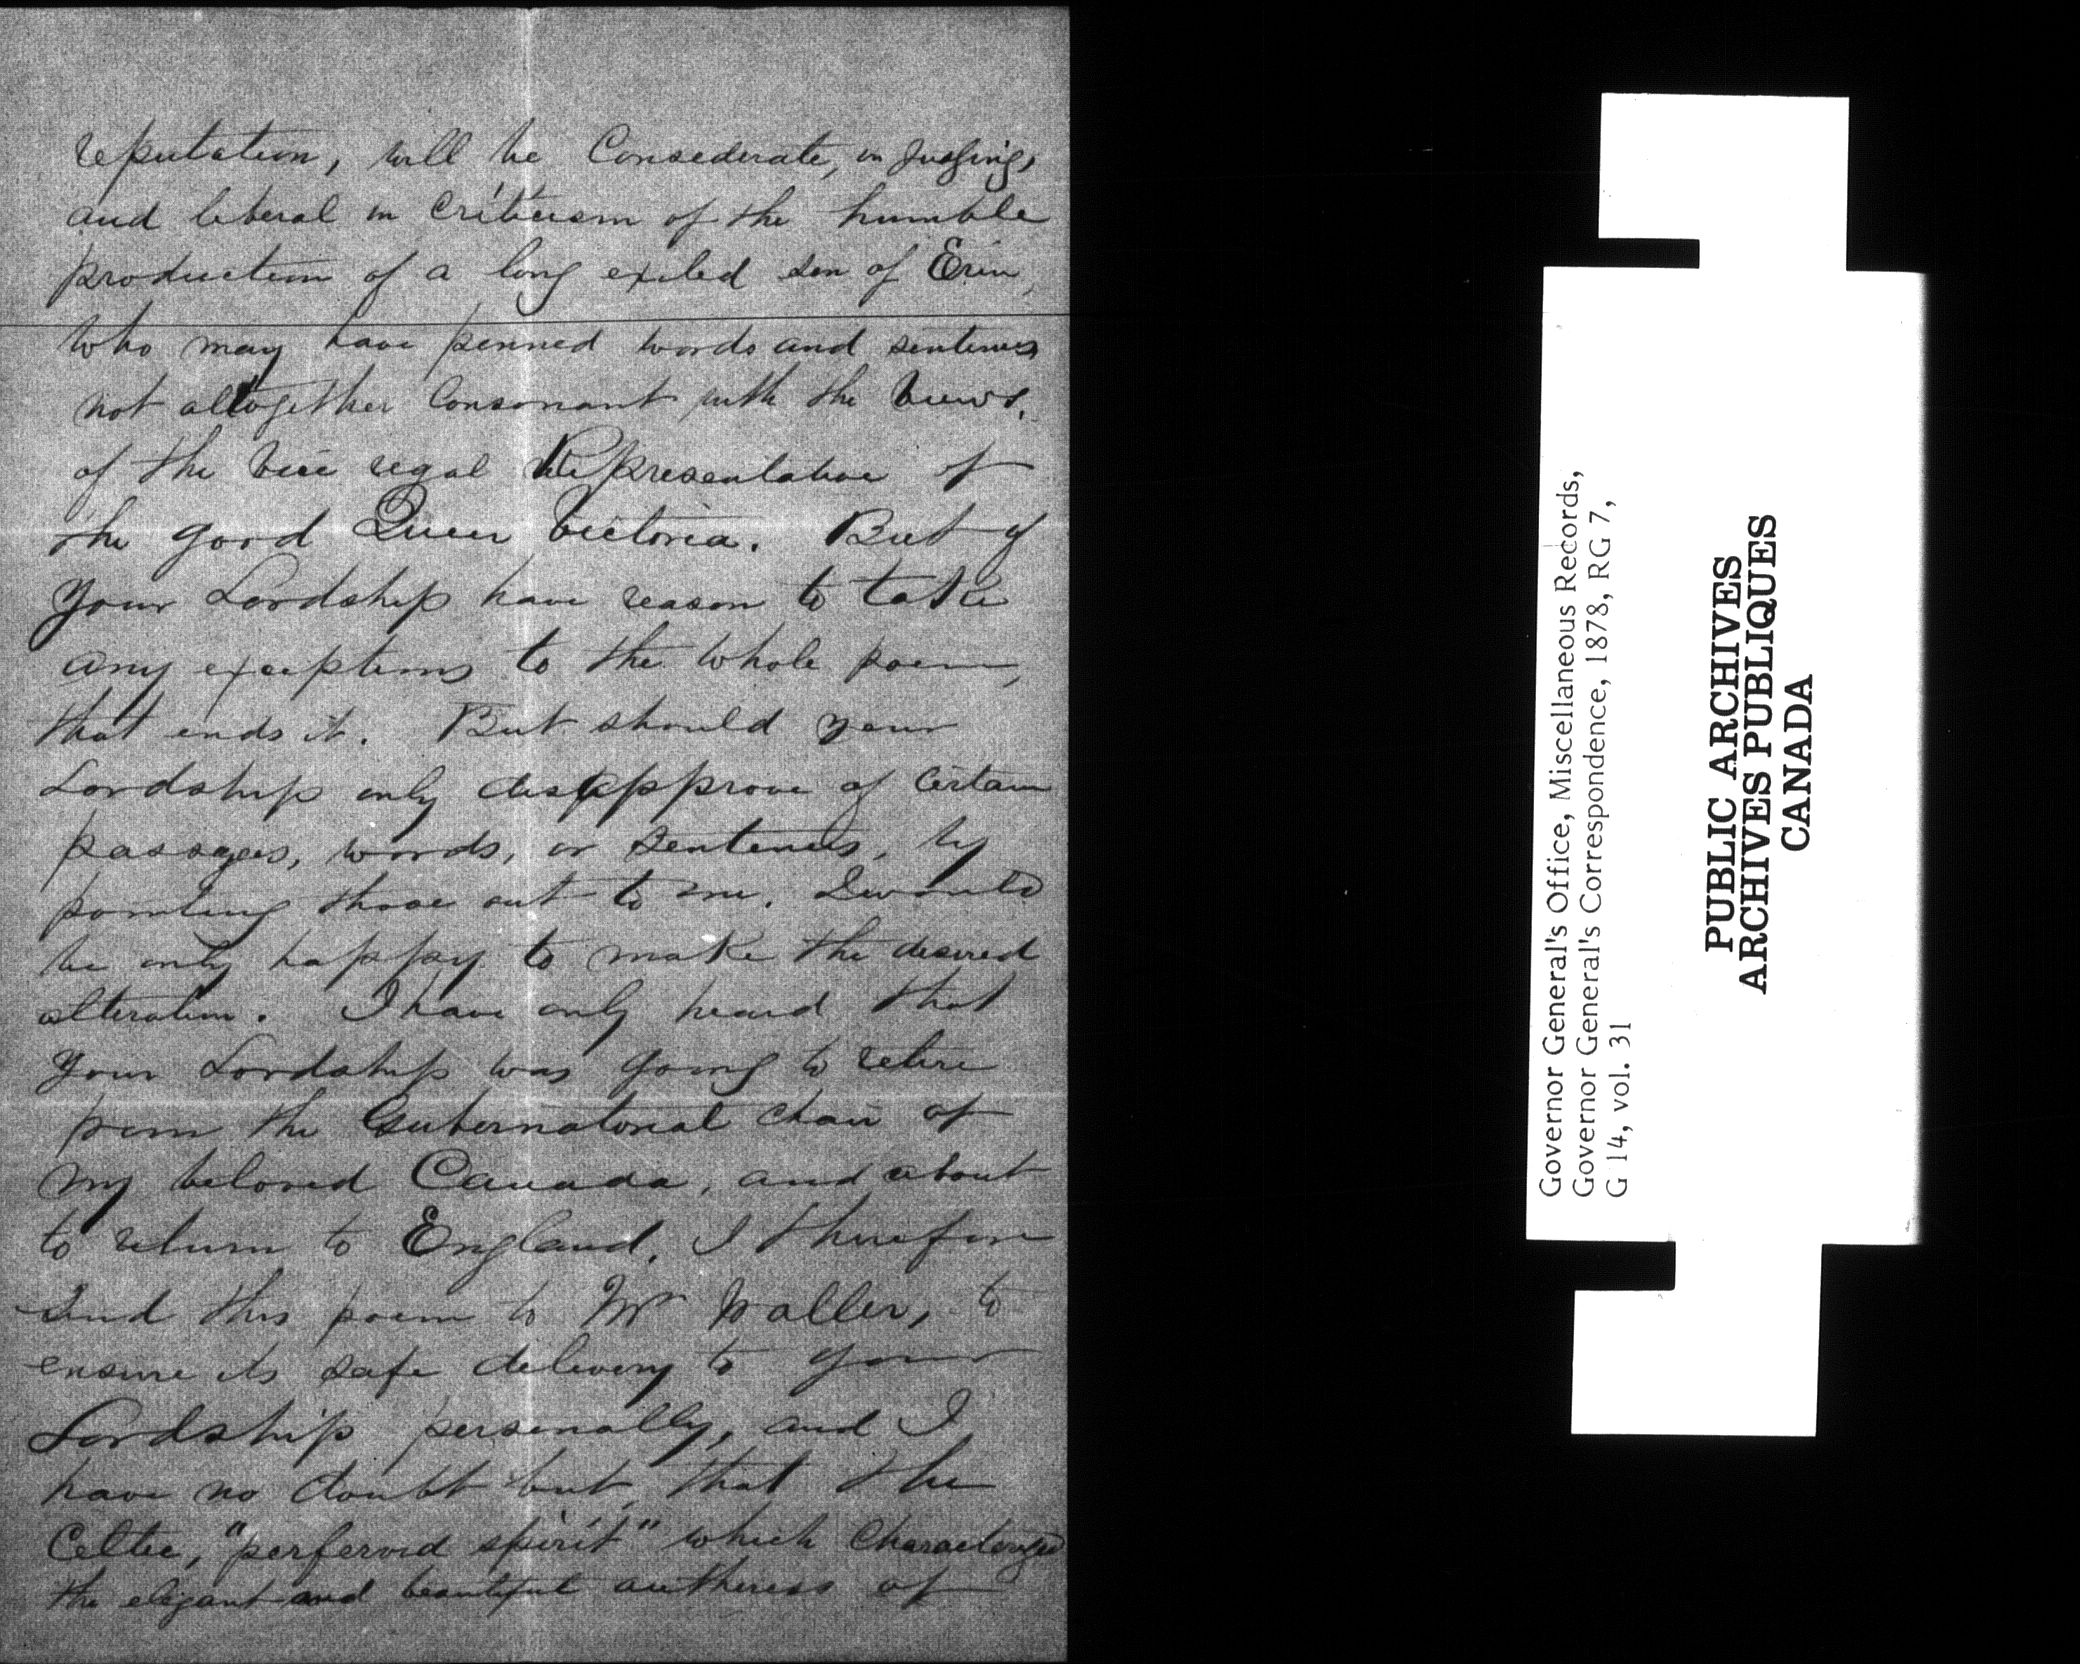 reputation, will be Considerate, in judging,
and liberal in criticism of the humble
production of a long exiled son of Erin,
who may have penned words and sentences
not altogether consonant with the views,
of the Vice regal Representative of
the good Queen Victoria. But if
your Lordship have reason to take
any exceptions to the whole poem,
that ends it. But should your
Lordship only disapprove of certain
passages, words, or sentences, by
pointing those out to me, I would
be only happy to make the desired
alteration. I have only heard that
your Lordship was going to retire
from the Gubernatorial chair of
my beloved Canada, and about
to return to England. I therefore
send this poem to Mr Waller, to
ensure its safe delivery to your
Lordship personally, and I
have no doubt but, that the
Celtic, "perfervid spirit" which characterized
the elegant and beautiful autheress of
Governor General's Office, Miscellaneous Records,
Governor General's Correspondence, 1878, RG 7,
G 14, vol. 31
PUBLIC ARCHIVES
ARCHIVES PUBLIQUES
CANADA